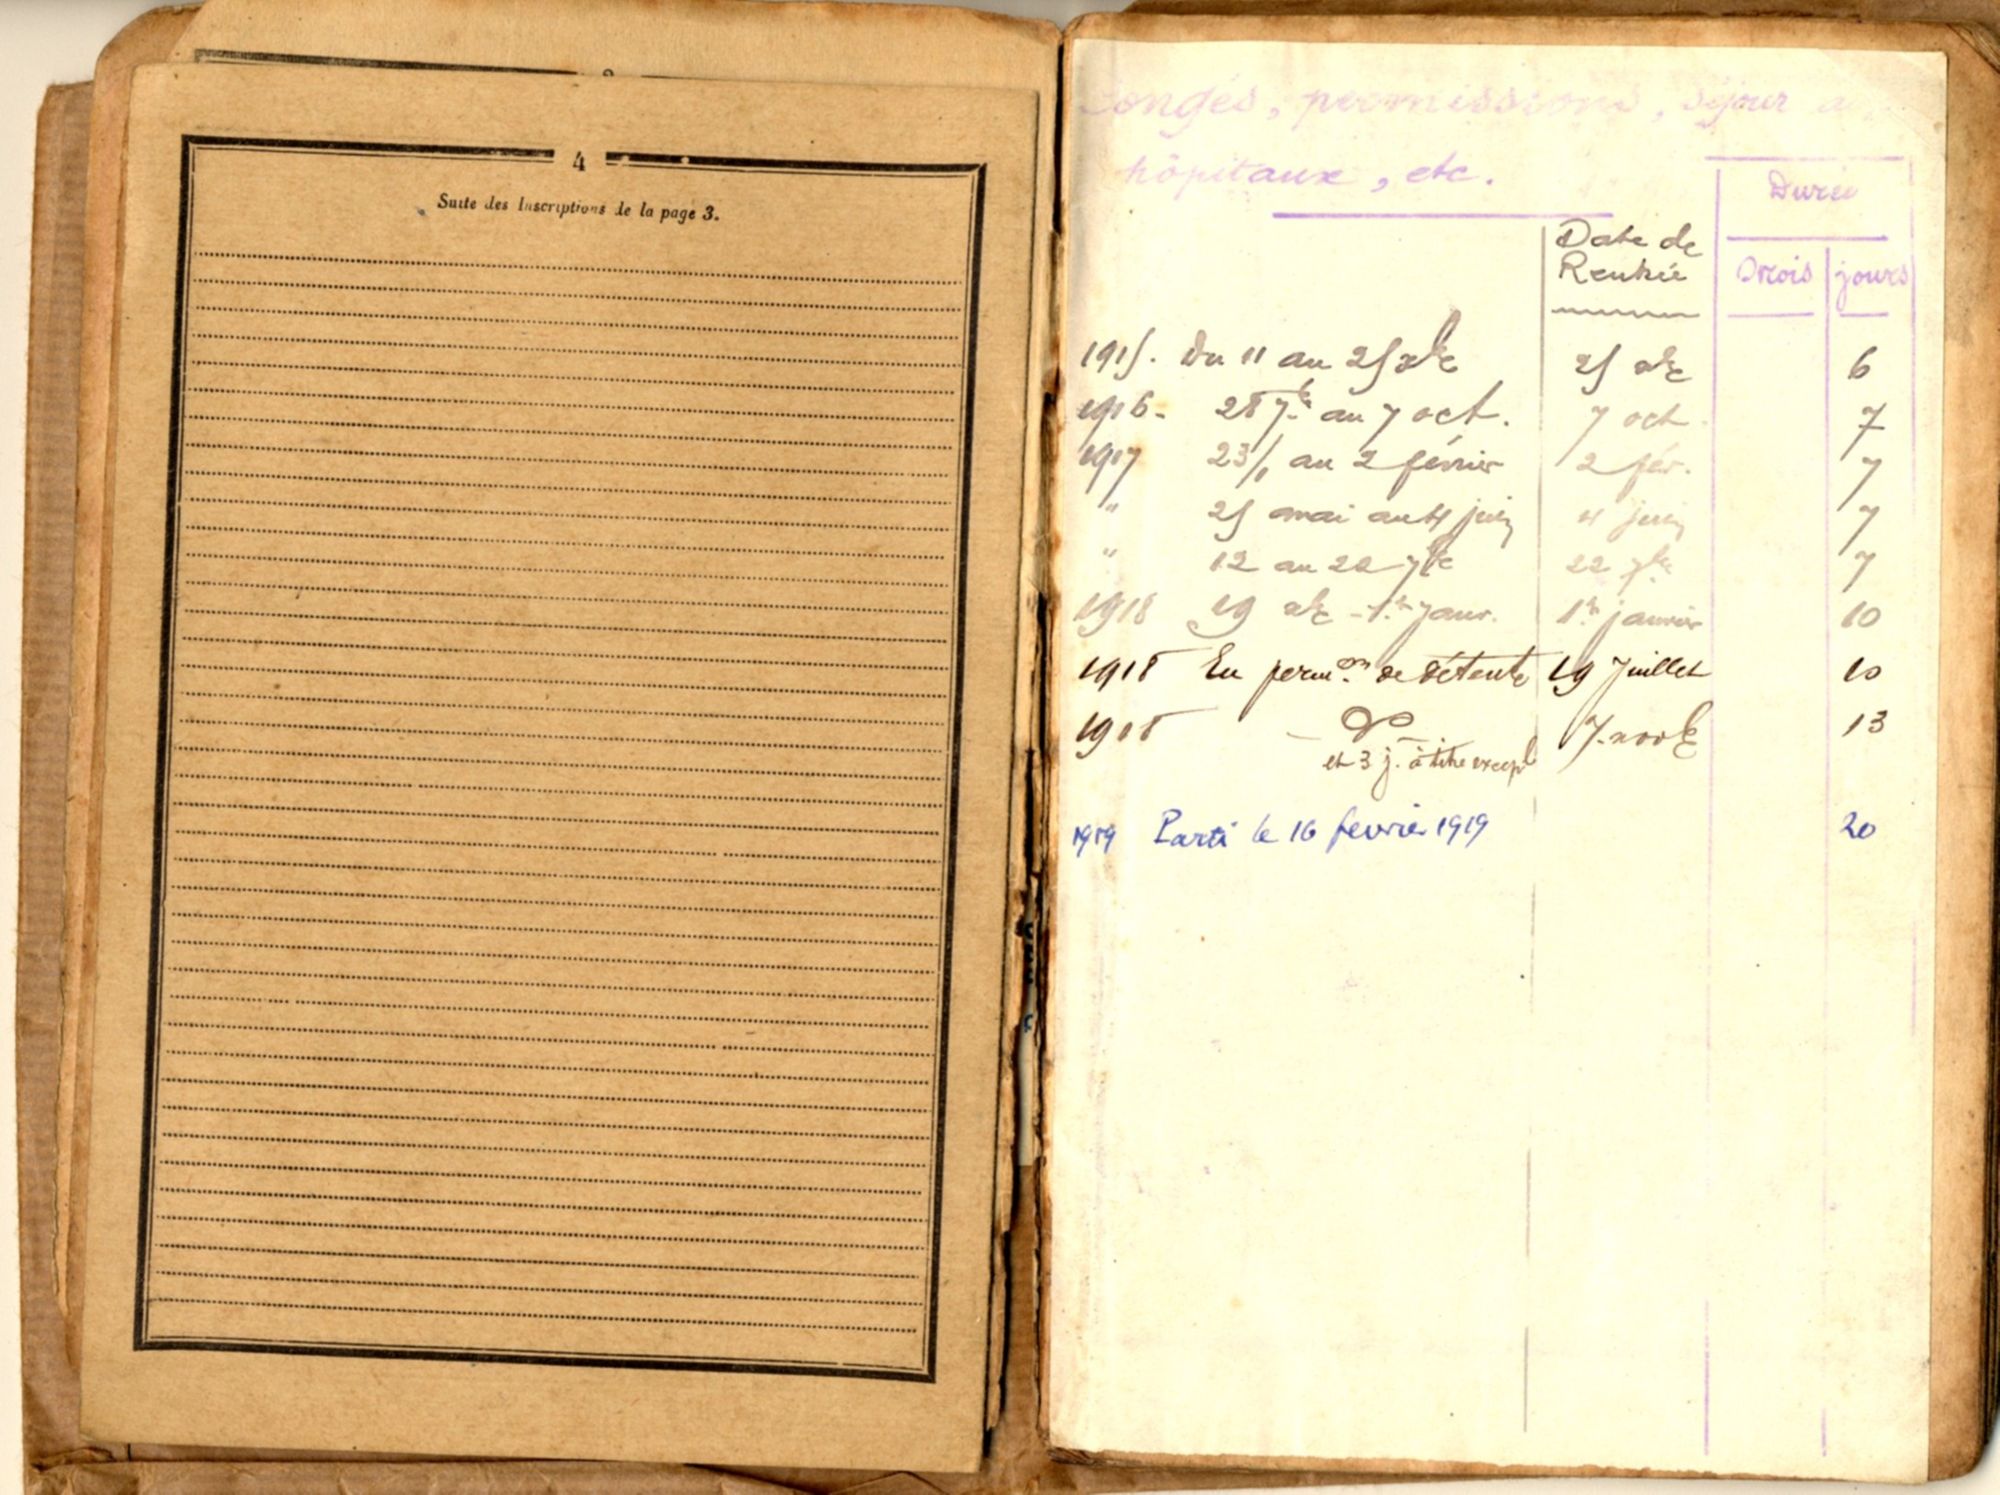 4
Suite des Inscriptions de la page 3.
Congés, permissions, séjour
hôpitaux, etc.
Durée
Date de
Rentrée
Mois jours
1915. Du 11 au 25 xbre 25 xbre 6
1916- 28 7bre au 7 oct. 7 oct. 7
1917 23/1 au 2 février 2 fév. 7
" 25 mai au 4 juin 4 juin 7
" 12 au 22 7bre 22 7bre 7
1918 19 xbre - 1er janv. 1er janvier 10
1918 En permon de détente 19 Juillet 10
1918 - do - 7 novbre 13
et 3 j. à titre excepl
1919 Parti le 16 fevrier 1919 20